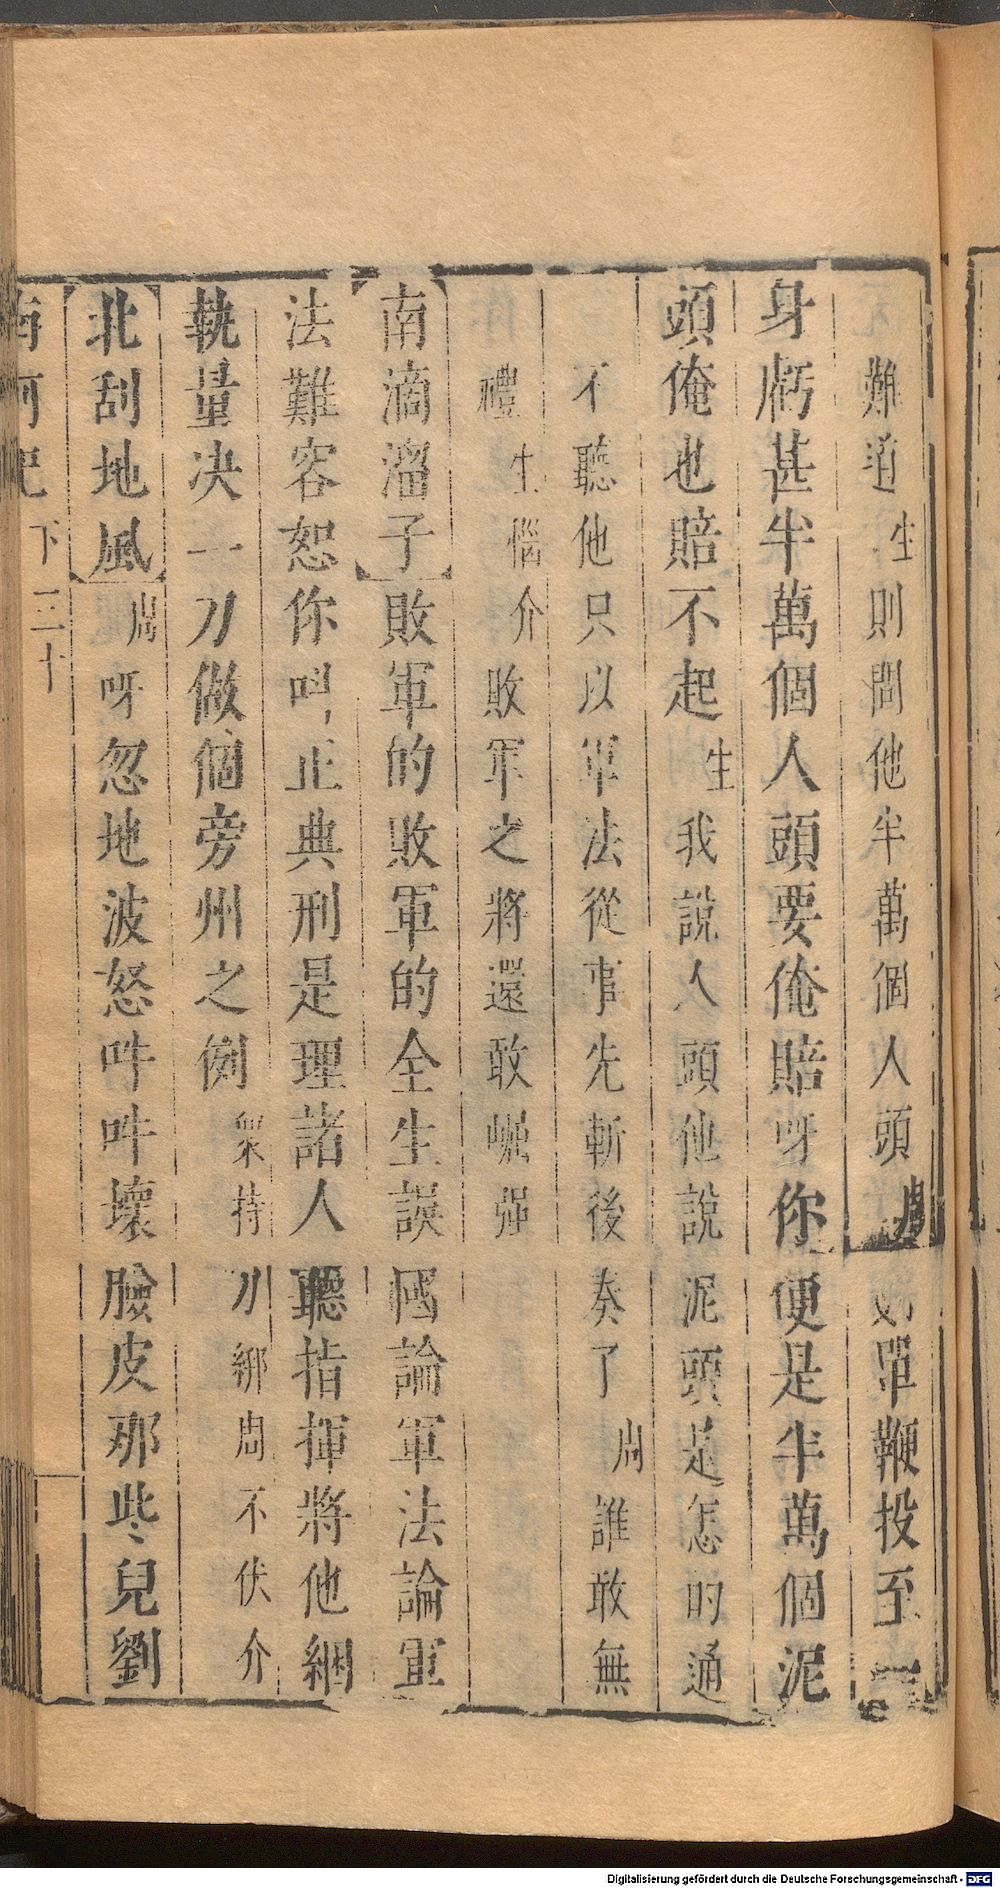 難道生則問他半萬個人頭周好單鞭投至一
身虧甚半萬個人頭要俺賠呀你便是半萬個泥
頭俺也賠不起生我說人頭他說泥頭是怎的通
不聽他只以軍法從事先斬後奏了周誰敢無
禮生惱介敗軍之將還敢崛彊
【南滴溜子】敗軍的敗軍的全生誤國論軍法論軍
法難容恕你叫止典刑是理諸人聽指揮將他綑
執量決一刀做個旁州之例衆持刀綁周不伏介
【北刮地風】周呀忽地波怒吽吽壞臉皮那些兒劉
南柯記 下 三十
Digitalisierung gefördert durch die Deutsche Forschungsgemeinschaft - DFG